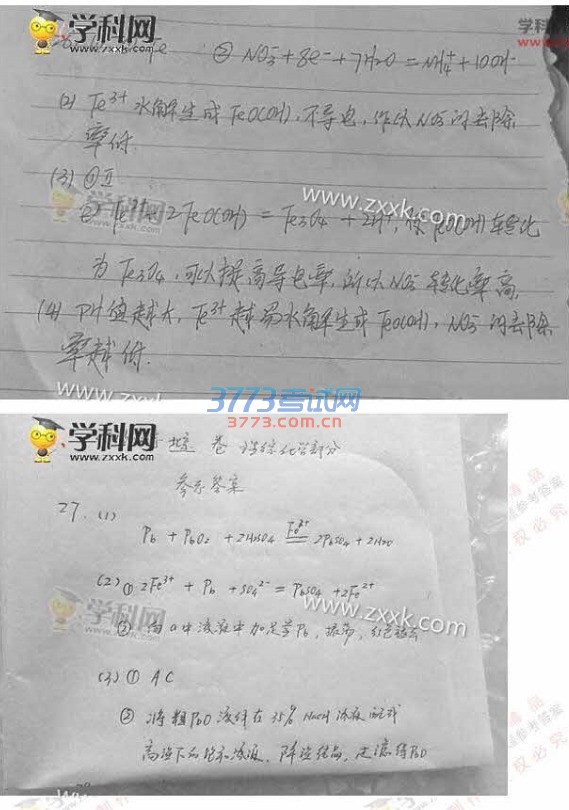 学科网
www.zxxk.com
学科网
zxxk.com
Fe ② NO3⁻ + 8e⁻ + 7H2O = NH4⁺ + 10OH⁻
(2) Fe³⁺ 水解生成 FeO(OH), 不导电, 所以 NO3⁻ 的去除
率低.
(3) ① Ⅱ
www.zxxk.com
Fe²⁺ + 2FeO(OH) = Fe3O4 + 2H⁺, 使 FeO(OH) 转化
为 Fe3O4, 可以提高导电率, 所以 NO3⁻ 转化率高.
(4) PH值越大, Fe³⁺ 越易水解生成 FeO(OH), NO3⁻ 的去除
率越低.
www.zxxk
3773考试网
3773.com.cn
学科网
zxxk.com
北京 卷 理综化学部分
参考答案
27. (1)
Pb + PbO2 + 2H2SO4 =Fe²⁺= 2PbSO4 + 2H2O
(2) ① 2Fe³⁺ + Pb + SO4²⁻ = PbSO4 + 2Fe²⁺
www.zxxk.com
学科网
② 向a中溶液中加足量Pb, 振荡, 红色褪去
(3) ① A C
② 将粗PbO溶解在35% NaOH溶液 配成
高温下的饱和溶液, 降温结晶, 过滤得PbO